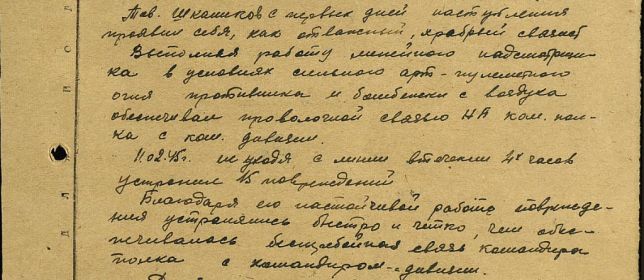 Тов. Шкаликов с первых дней наступления
проявил себя, как отважный, храбрый связист
Выполняя работу линейного надсмотрщи-
ка в условиях сильного арт-пулеметного
огня противника и бомбежки с воздуха
обеспечивал проволочной связью НП ком. пол-
ка с ком. дивизии.
11.02.45г. не уходя с линии втечении 4х часов
устранил 15 повреждений
Благодаря его настойчивой работе поврежде-
ния устранялись быстро и четко, чем обес-
печивалась бесперебойная связь командира
полка с командиром дивизии.